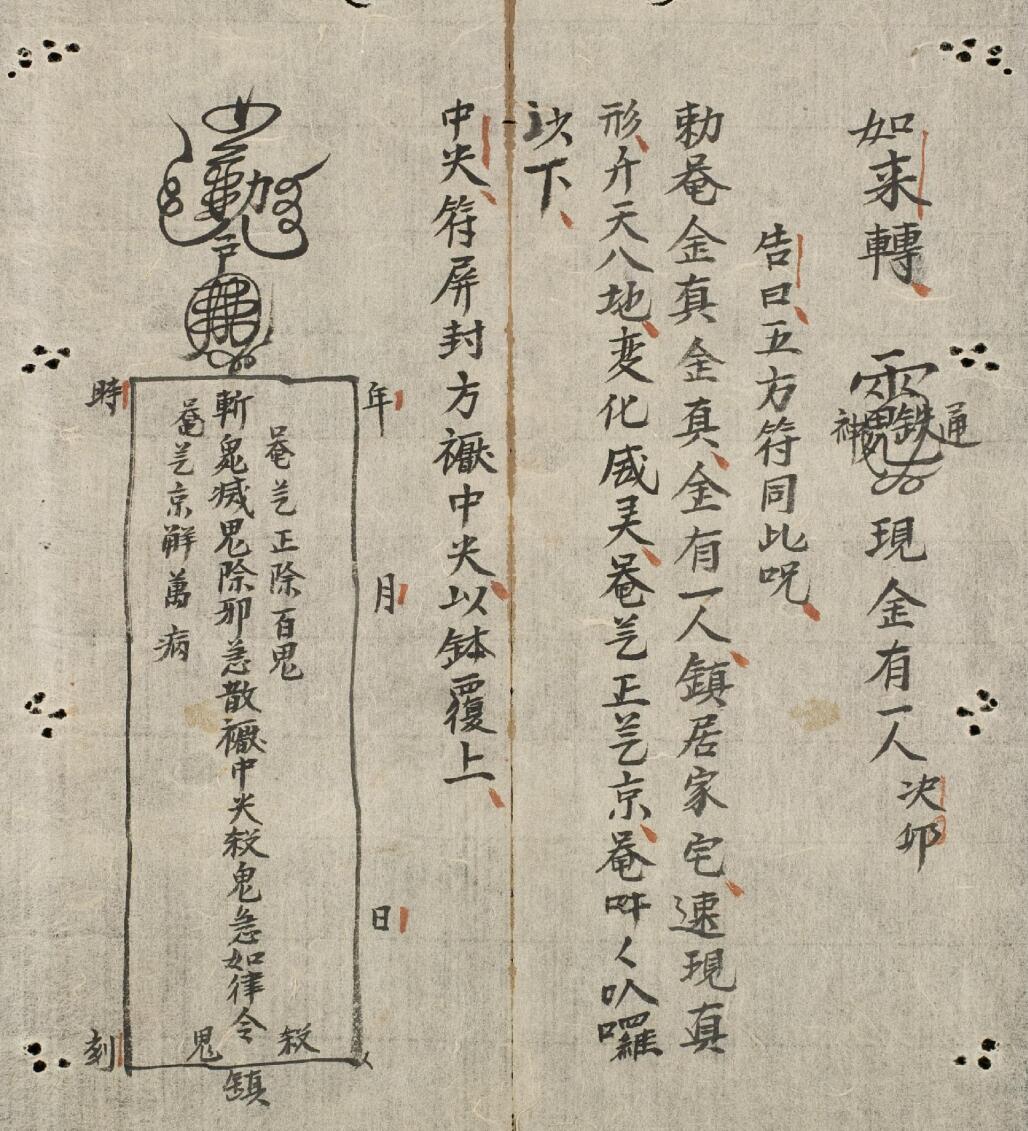 如来轉 神 鉄 通 現金有一人 决卯
告曰五方符同此呪
勅菴金真金真金有一人鎮居家宅速現真
形斤天八地変化威灵菴𫇦正𫇦京菴吽く叺囉
以下
中央符屏封方𧞣中央以鉢覆上
年 月 日
菴𫇦正除百鬼
斬鬼滅鬼除邪急散中央殺鬼急如律令
菴𫇦京觧萬病
殺鬼
時 刻
勅
鎮